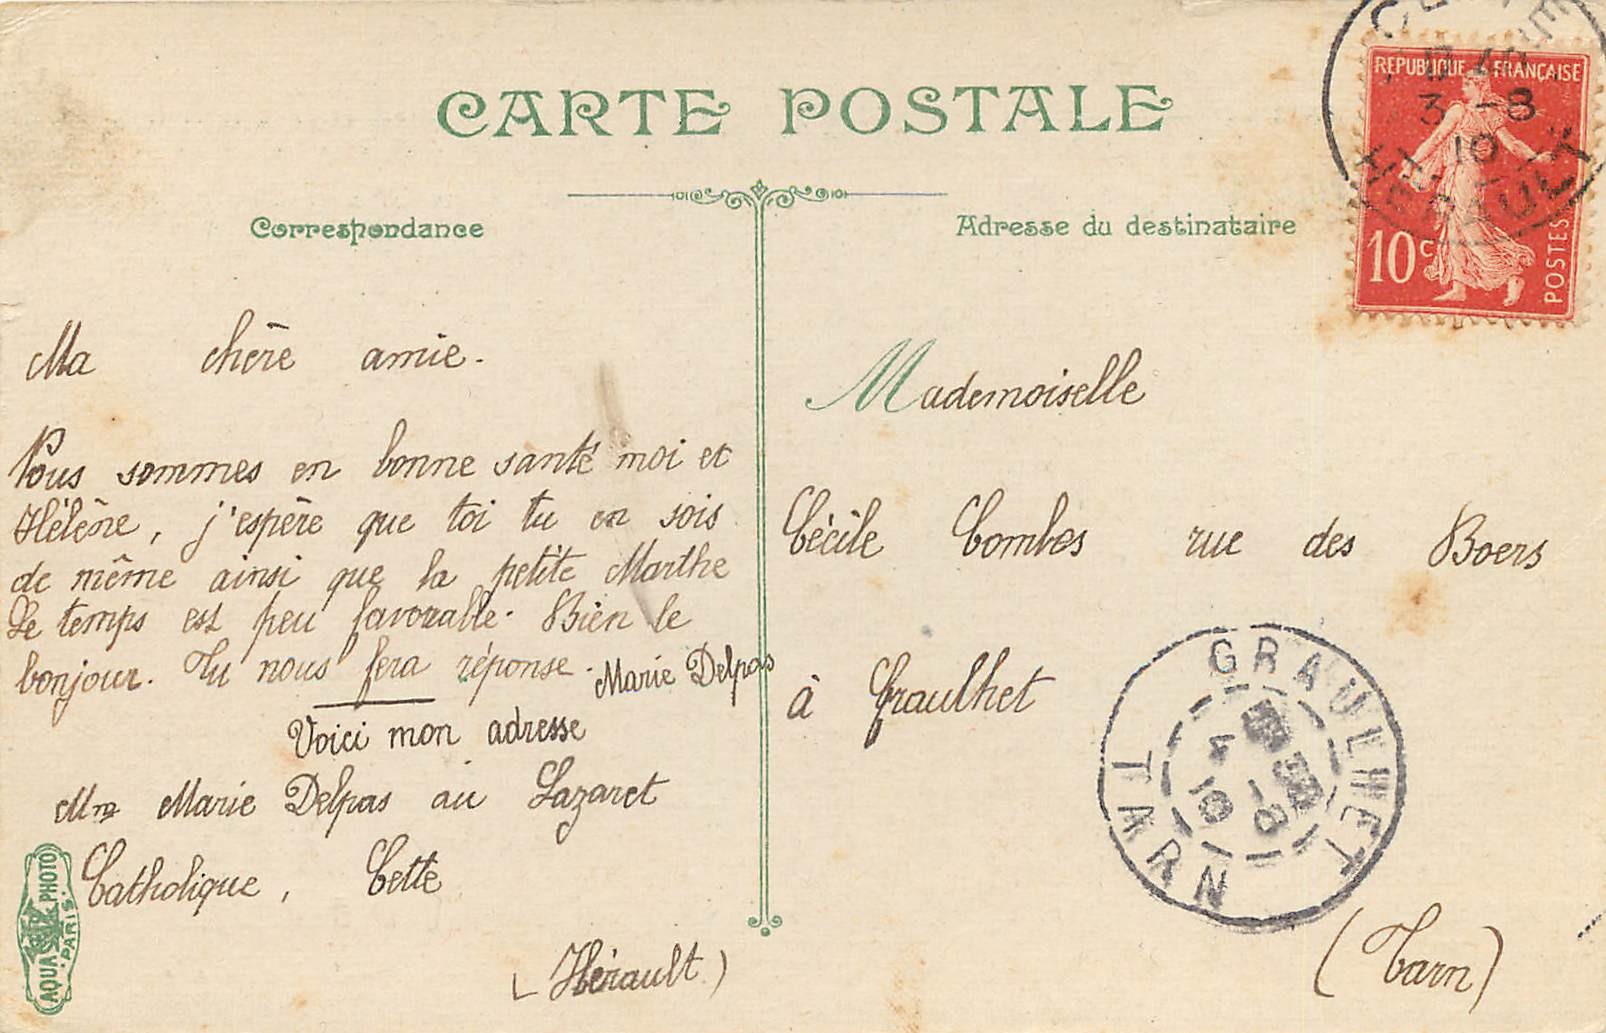 CARTE POSTALE
Correspondance
Adresse du destinataire
REPUBLIQUE FRANÇAISE
10c
POSTES
3 -8
10
HERAULT
Ma chère amie.
Nous sommes en bonne santé moi et
Hélène, j'espère que toi tu en sois
de même ainsi que la petite Marthe
Le temps est peu favorable. Bien le
bonjour. Tu nous fera réponse. Marie Delpas
Voici mon adresse
Mme Marie Delpas au Lazaret
Catholique, Cette
(Hérault)
Mademoiselle
Cécile Combes rue des Boers
à Graulhet
(Tarn)
GRAULHET
4 -8
10
TARN
AQUA PHOTO
PARIS